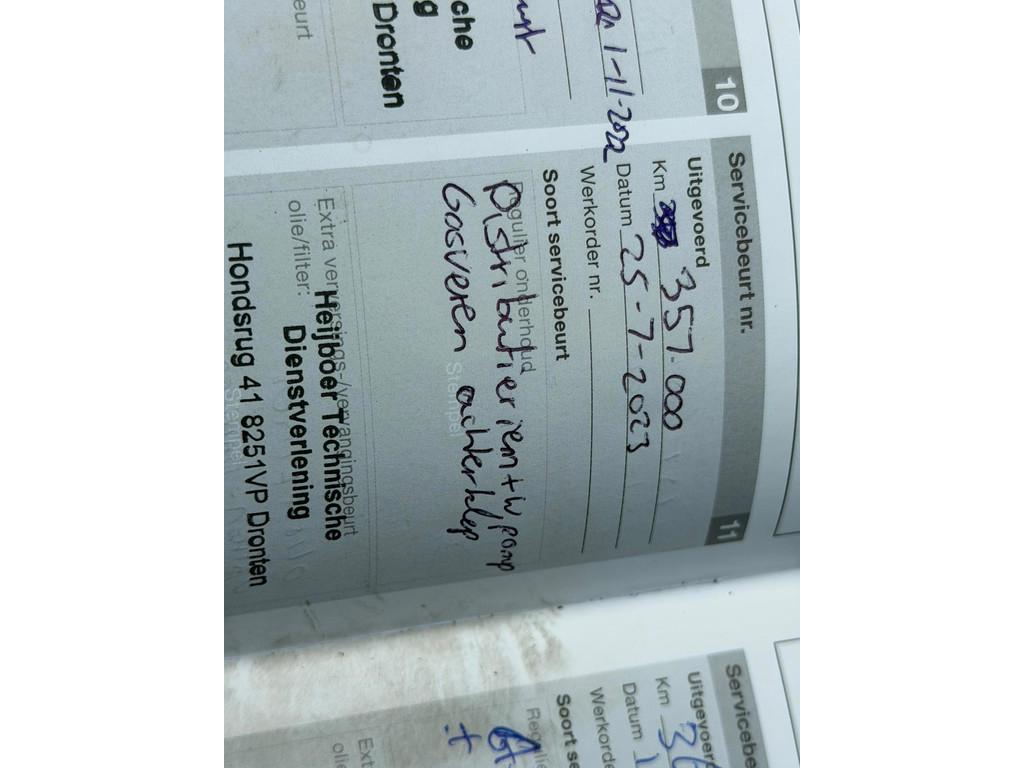 10
1-11-2022
che
g
Dronten
eurt
Servicebeurt nr. 11
Uitgevoerd
Km 357.000
Datum 25-7-2023
Werkorder nr.
Soort servicebeurt
Regulier onderhoud
Distributieriem + w,pomp
Gasveren achterklep
Stempel
Extra verversings-/vervangingsbeurt
olie/filter:
Heijboer Technische
Dienstverlening
Hondsrug 41 8251VP Dronten
Stempel
Servicebe
Uitgevoerd
Km 36
Datum 1
Werkorde
Soort se
Regulie
+
Ext
olie